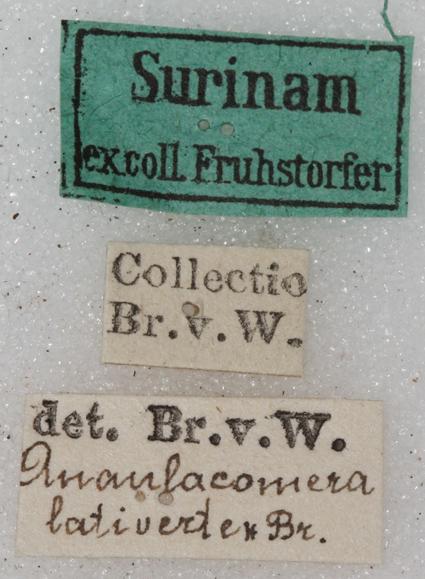 Surinam
ex coll. Fruhstorfer
Collectio
Br. v. W.
det. Br. v. W.
Anaulacomera
lativertex Br.